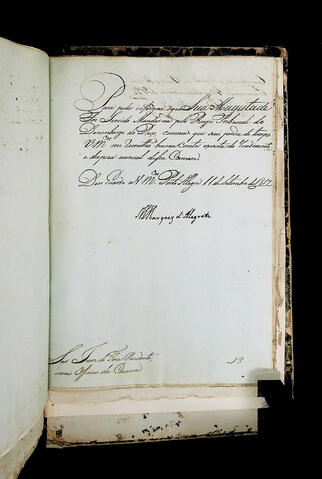 Para poder informar o que Sua Magestade
Foi Servido Mandar me pelo Regio Tribunal do
Dezembargo do Paço, convem que sem perda de tempo
V.Mces me remettão huma Conta exacta do Rendimento,
e despeza annual dessa Camara.
Deos Guarde a V.Mces Porto Alegre 11 de Setembro de 1817.
Marquez d'Alegrete
Snr.s Juiz de Fora Prezidente,
e mais Officiaes da Camara
13